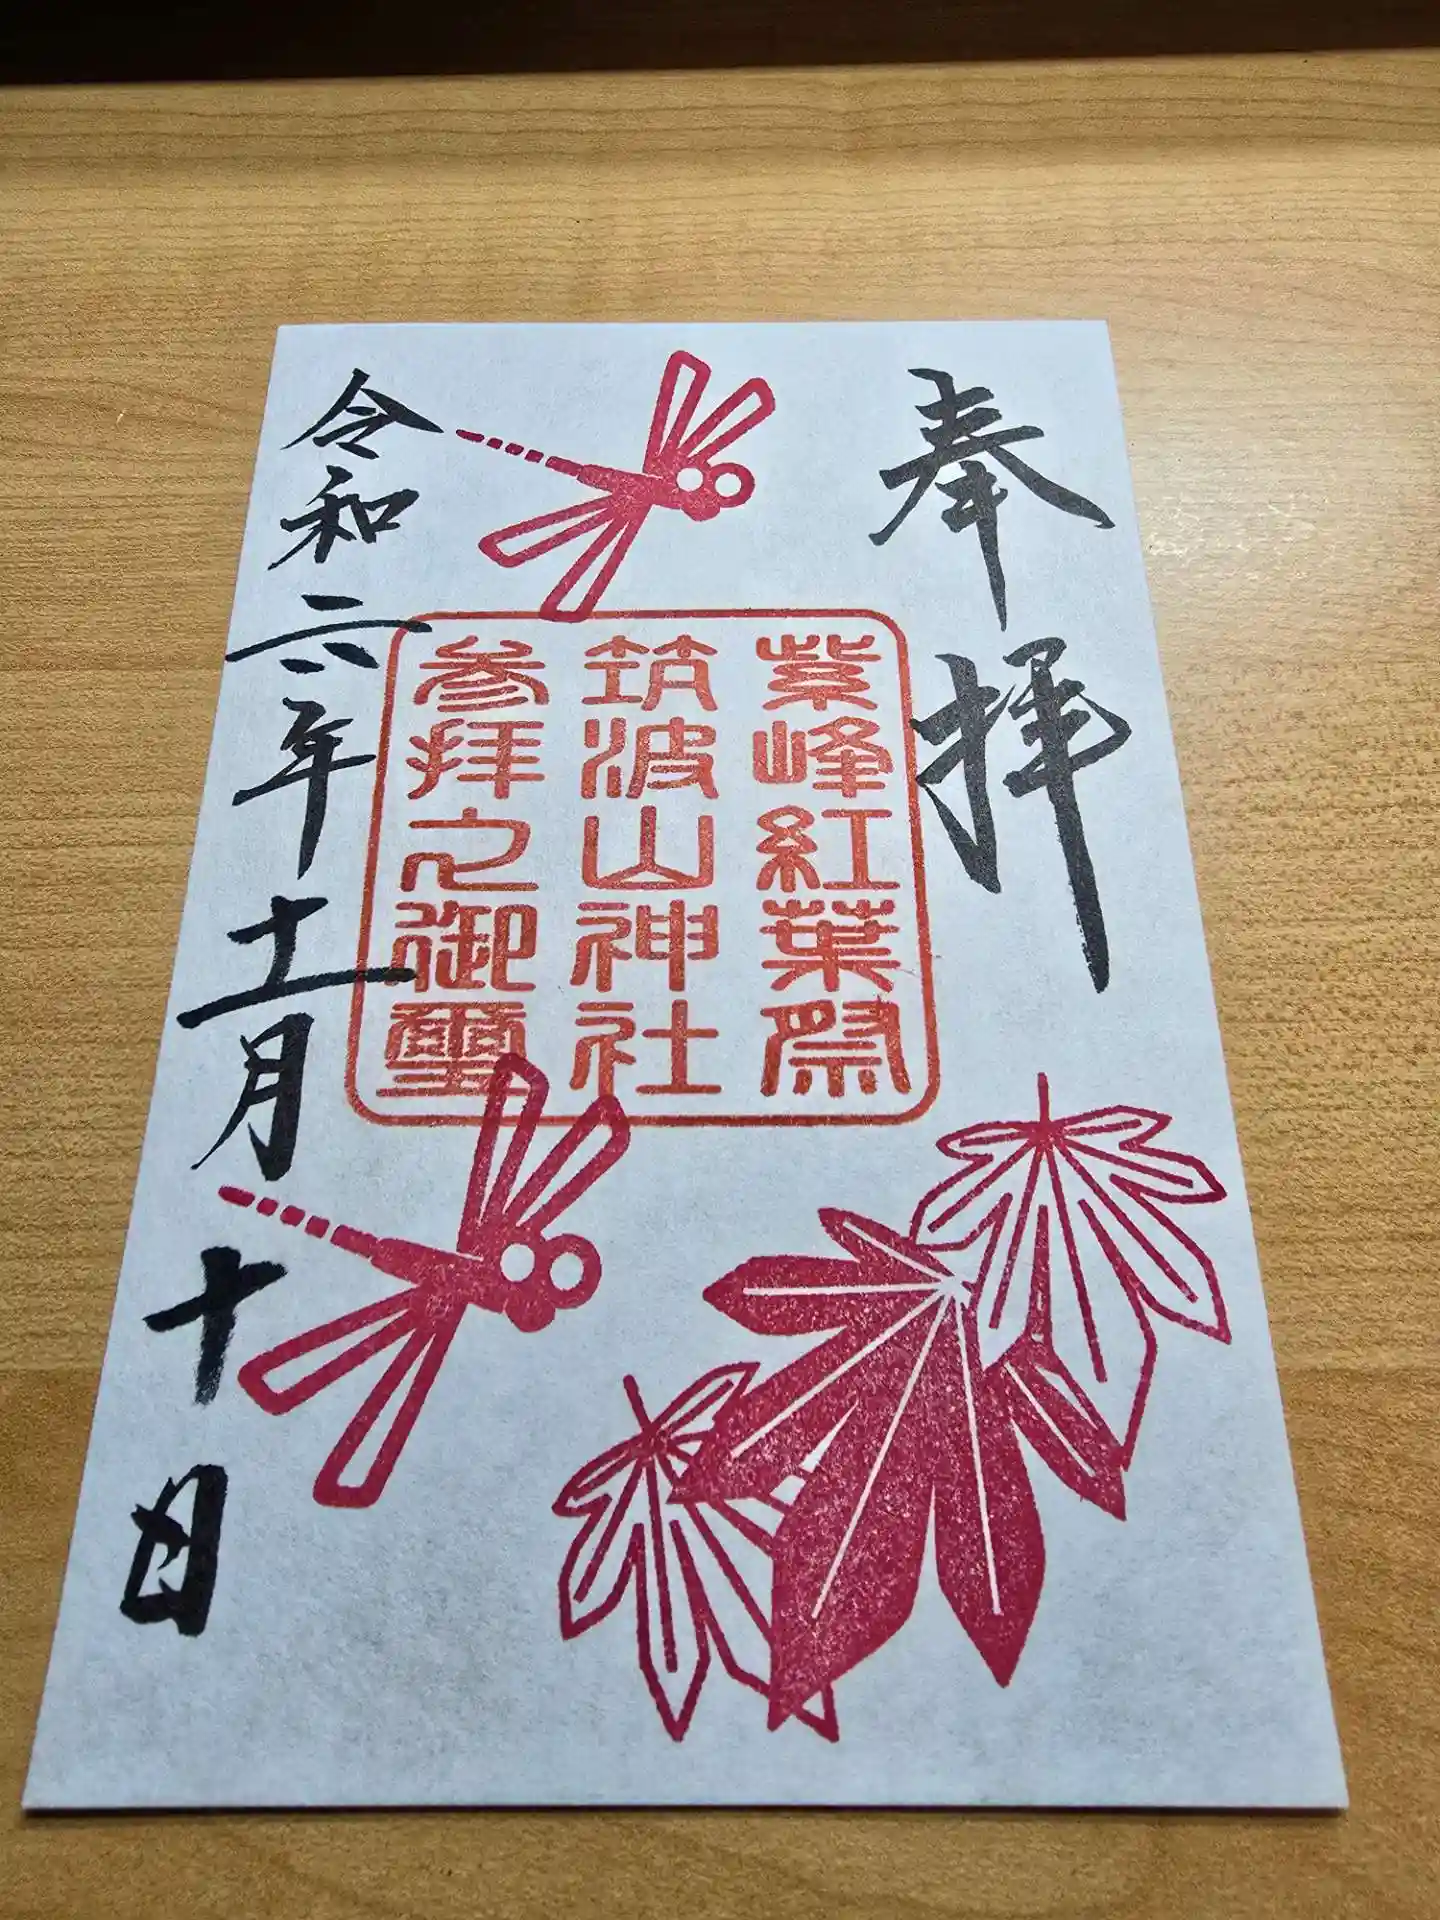 奉拝
紫峰紅葉祭
筑波山神社
参拝之御璽
令和六年十一月十日